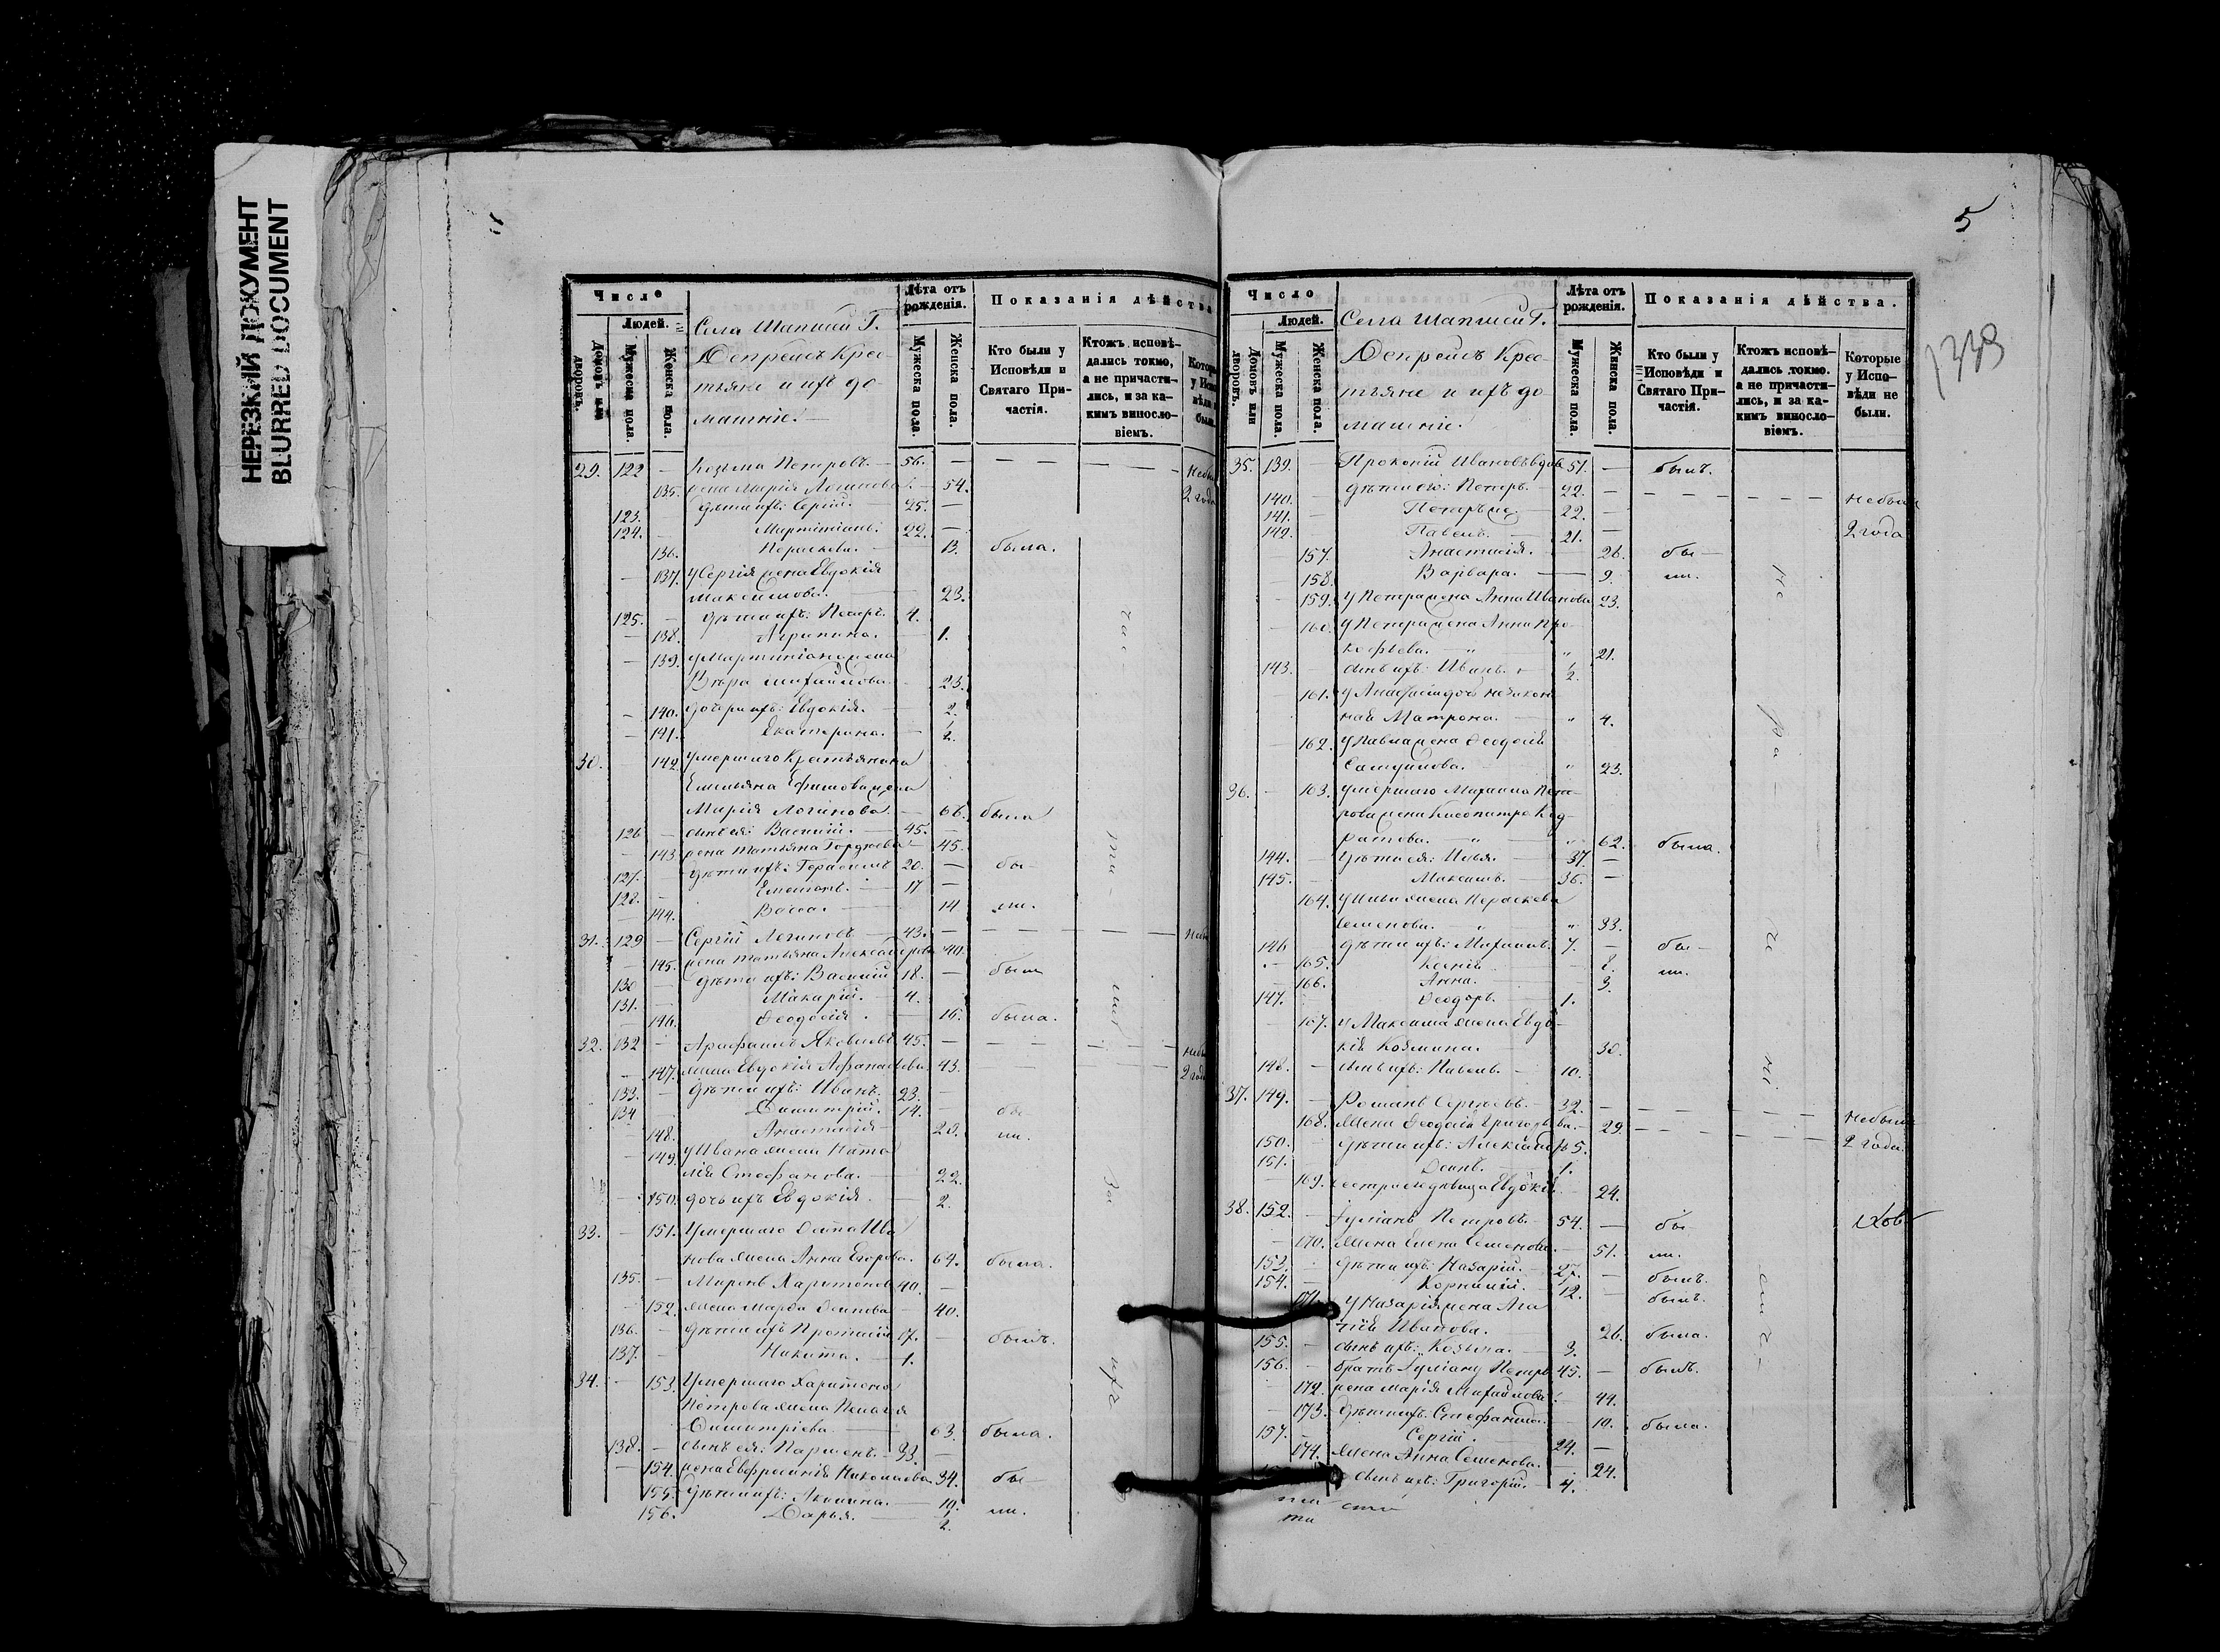 НЕРЕЗКИЙ ДОКУМЕНТ
BLURRED DOCUMENT
Число
Людей.
Домовъ или дворовъ.
Мужеска пола.
Женска пола.
Села
Крес-
тьяне и ихъ до-
машніе.
Лѣта отъ рожденія.
Мужеска пола.
Женска пола.
Показанія дѣйства
Кто были у Исповѣди и Святаго При-частія.
Ктожъ исповѣ-дались токмо, а не причасти-лись, и за ка-кимъ винословіемъ.
29. 122 — Козьма Петровъ. — 56. —
135. жена Марія Логинова — 54.
123. дѣти ихъ: Сергій. — 25. —
124. Мартиніанъ. 22. —
136. Параскева. — 13. была.
137. У Сергія жена Евдокія
Максимова. 23.
125. дѣти ихъ: Петръ. 4.
138. Агрипина. — 1.
139. у Мартиніана жена
Вѣра Михайлова. 23.
140. дочери ихъ: Евдокія. — 2.
141. Екатерина. — 1/2.
30. 142. Умершаго Крестьянина
Емельяна Ефимова жена
Марія Логинова. — 66. была
126 — сынъ ея: Василий. — 45. —
143 жена Татьяна Гордѣева — 45.
127. дѣти ихъ: Герасимъ 20. — бы-
128. — 17 —
144. Васса. — 14 ли.
31. 129 — Сергій Логиновъ — 43. —
145. жена Татьяна Александрова 40.
130 дѣти ихъ: Василий 18. — былъ
131. Макарій. — 4.
146. Ѳеодосія. — 16. была.
32. 132 — Яковлевъ 45. —
147. жена Евдокія Афанасьева. 43.
133. дѣти ихъ: Иванъ. 23. —
134 Димитрій. 14. — бы-
148. Анастасія 20. ли.
149. у Ивана жена Ната-
лія Стефанова. — 22.
150. дочь ихъ Евдокія. — 2.
33. — 151. Умершаго Ива-
нова жена Анна Егорова. 64. была.
135. — Миронъ Харитоновъ 40. —
152. жена Марѳа — 40.
136. — дѣти ихъ 17. — былъ.
137. Никита. — 1.
34. — 153. Умершаго Харитона
Петрова жена Пелагея
Димитріева. — 63. была.
138. — сынъ ея: Парменъ. — 33. —
154. жена Евфросинія Николаева. 34. бы-
155. дѣти ихъ: Акилина. — 10. ли.
156. Дарья. — 1/2.
5
1339
Число
Людей.
Домовъ или дворовъ.
Мужеска пола.
Женска пола.
Села
Крес-
тьяне и ихъ до-
машніе.
Лѣта отъ рожденія.
Мужеска пола.
Женска пола.
Показанія дѣйства.
Кто были у Исповѣди и Святаго При-частія.
Ктожъ исповѣ-дались токмо, а не причасти-лись, и за ка-кимъ винословіемъ.
Которые у Испо-вѣди не были.
35. 139. — Прокопій Ивановъ вдов 51. — былъ.
140. — дѣти его: Петръ. — 22. — Небыли
141. — 22. —
142. — Павелъ. — 21. — 2 года
157. Анастасія. — 26. бы-
158. Варвара. — 9. ли.
159. у Петра жена Анна Иванова 23.
160. у Петра жена Анна Про-
кофьева. 21.
143. — сынъ ихъ: Иванъ. 1/2.
161. у дочь незакон-
ная Матрона. 4.
162. у Павла жена Ѳеодосія
23.
36. — 163. умершаго Михаила Пет-
рова жена Клеопатра
62. была.
144. — дѣти ея: Илья. 37. —
145. — Максимъ. — 36. —
164. у Ильи жена Параскева
Семенова. 33.
146 дѣти ихъ: Михаилъ. 7. — бы-
165. Ксенія 8. ли.
166. Анна. 3.
147. Ѳеодоръ. 1.
167. у Максима жена Евдо-
кія Козмина. 30.
148. — сынъ ихъ: Павелъ. — 10.
37. 149. — Романъ Сергѣевъ. — 32. — Небыли
168. жена Ѳеодосія Григорьева. — 29. 2 года.
150. — дѣти ихъ: Александръ 5.
151. — 1.
169. сестра его Евдокія 24.
38. 152. — Іуліанъ Петровъ. 54. — бы-
170. жена Елена Семенова. — 51. ли.
153. — дѣти ихъ: Назарій. — 27. — былъ.
154. — Корнилій. — 12. — былъ.
у Назарія жена Ага-
Иванова. 26. была.
155. — сынъ ихъ: Козьма. — 3.
156. — братъ Іуліану Петръ 45. — былъ.
172. жена Марія Михайлова. 44.
173. дѣти ихъ: Стефанида. — 10. была.
157. — Сергій. 24. —
174. жена Анна Семенова. — 24.
сынъ ихъ: Григорій. — 4.